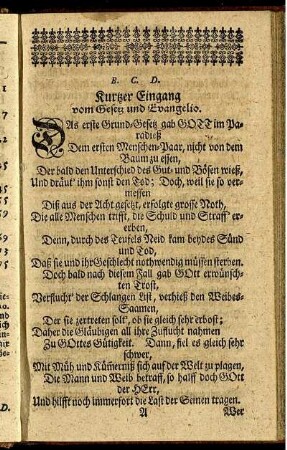 B. C. D.
Kurtzer Eingang
vom Gesetz und Evangelio.
DAs erste Grund-Gesetz gab GOTT im Pa-
radieß
Dem ersten Menschen-Paar, nicht von dem
Baum zu essen,
Der bald den Unterschied des Gut- und Bösen wieß,
Und dräut' ihn sonst den Tod; Doch, weil sie so ver-
messen
Diß aus der Acht gesetzt, erfolgte grosse Noth,
Die alle Menschen trifft, die Schuld und Straff' er-
erben,
Denn, durch des Teufels Neid kam beydes Sünd
und Tod,
Daß sie und ihr Geschlecht nothwendig müssen sterben.
Doch bald nach diesem Fall gab GOtt erwünsch-
ten Trost,
Verflucht' der Schlangen List, verhieß den Weibes-
Saamen,
Der sie zertreten solt', ob sie gleich sehr erbost;
Daher die Gläubigen all ihre Zuflucht nahmen
Zu GOttes Gütigkeit. Dann, fiel es gleich sehr
schwer,
Mit Müh und Kümerniß sich auf der Welt zu plagen,
Die Mann und Weib betraff, so halff doch GOtt
der HErr,
Und hilfft noch immerfort die Last der Seinen tragen.
A Wer